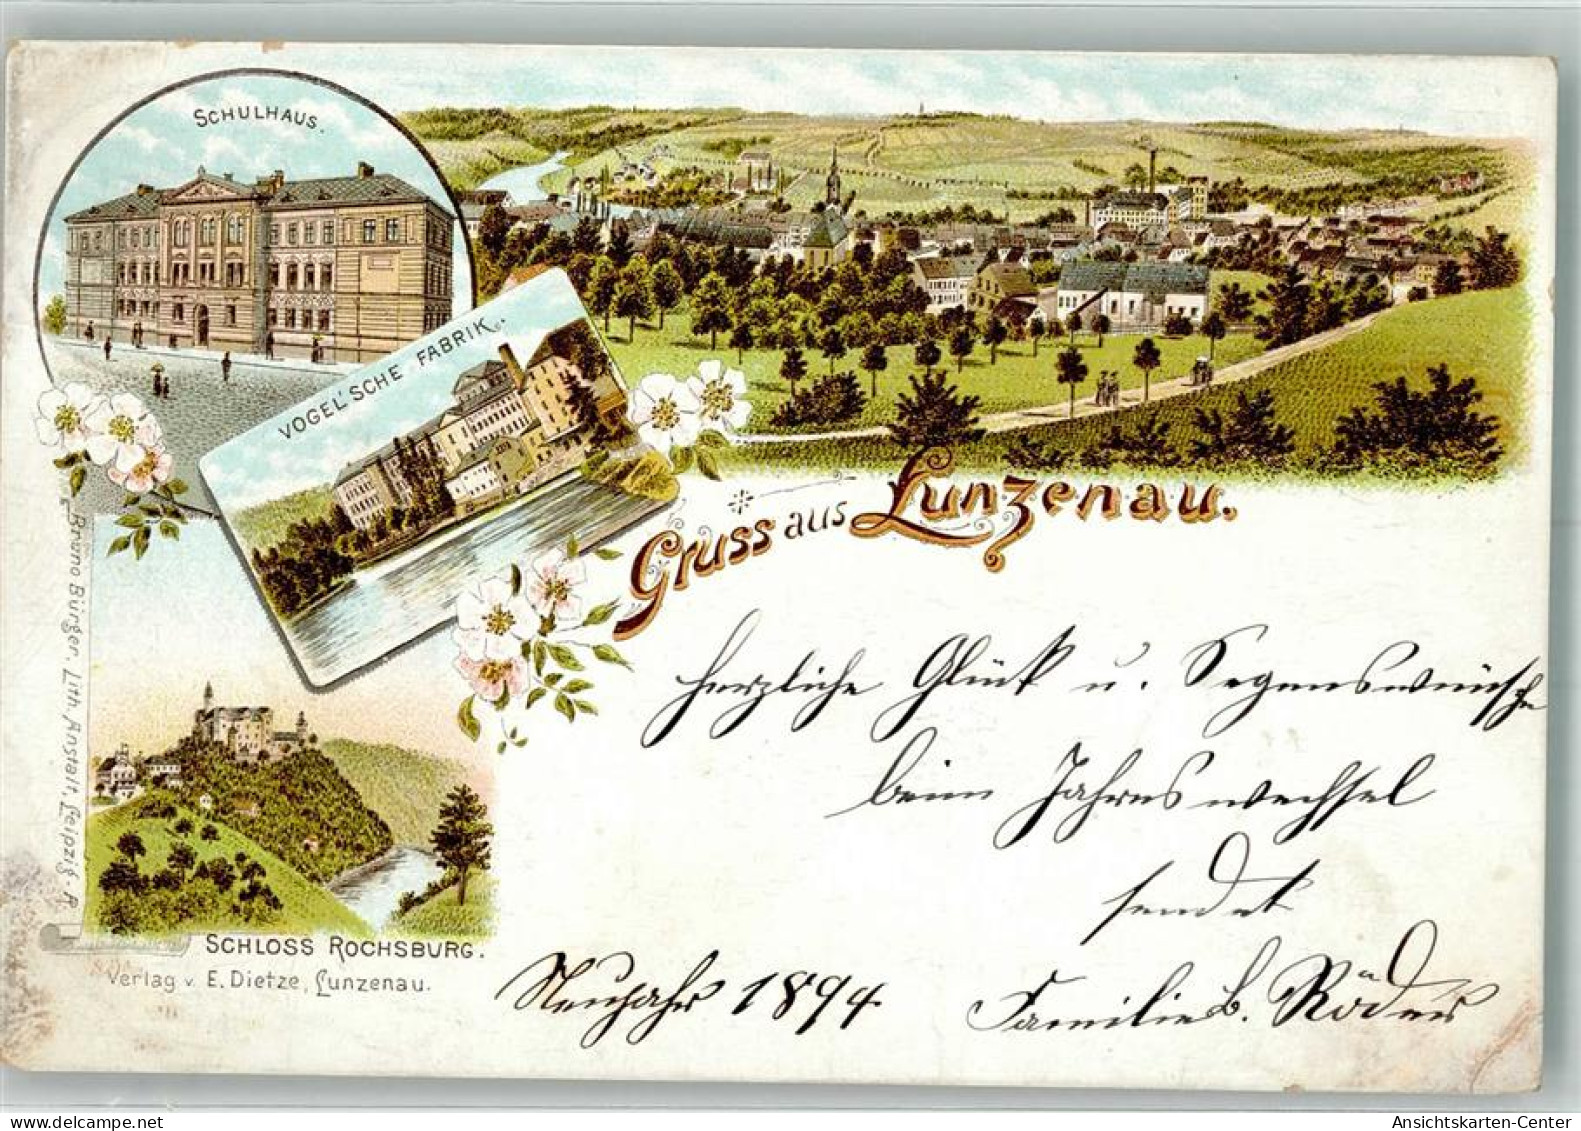 SCHULHAUS.
VOGEL'SCHE FABRIK.
Gruss aus Lunzenau.
Herzliche Glück u. Segenswünsche
beim Jahreswechsel
sendet
Neujahr 1894. Familie B. Röder
Bruno Bürger, Lith. Anstalt, Leipzig. R.
SCHLOSS ROCHSBURG.
Verlag v. E. Dietze, Lunzenau.
Ansichtskarten-Center